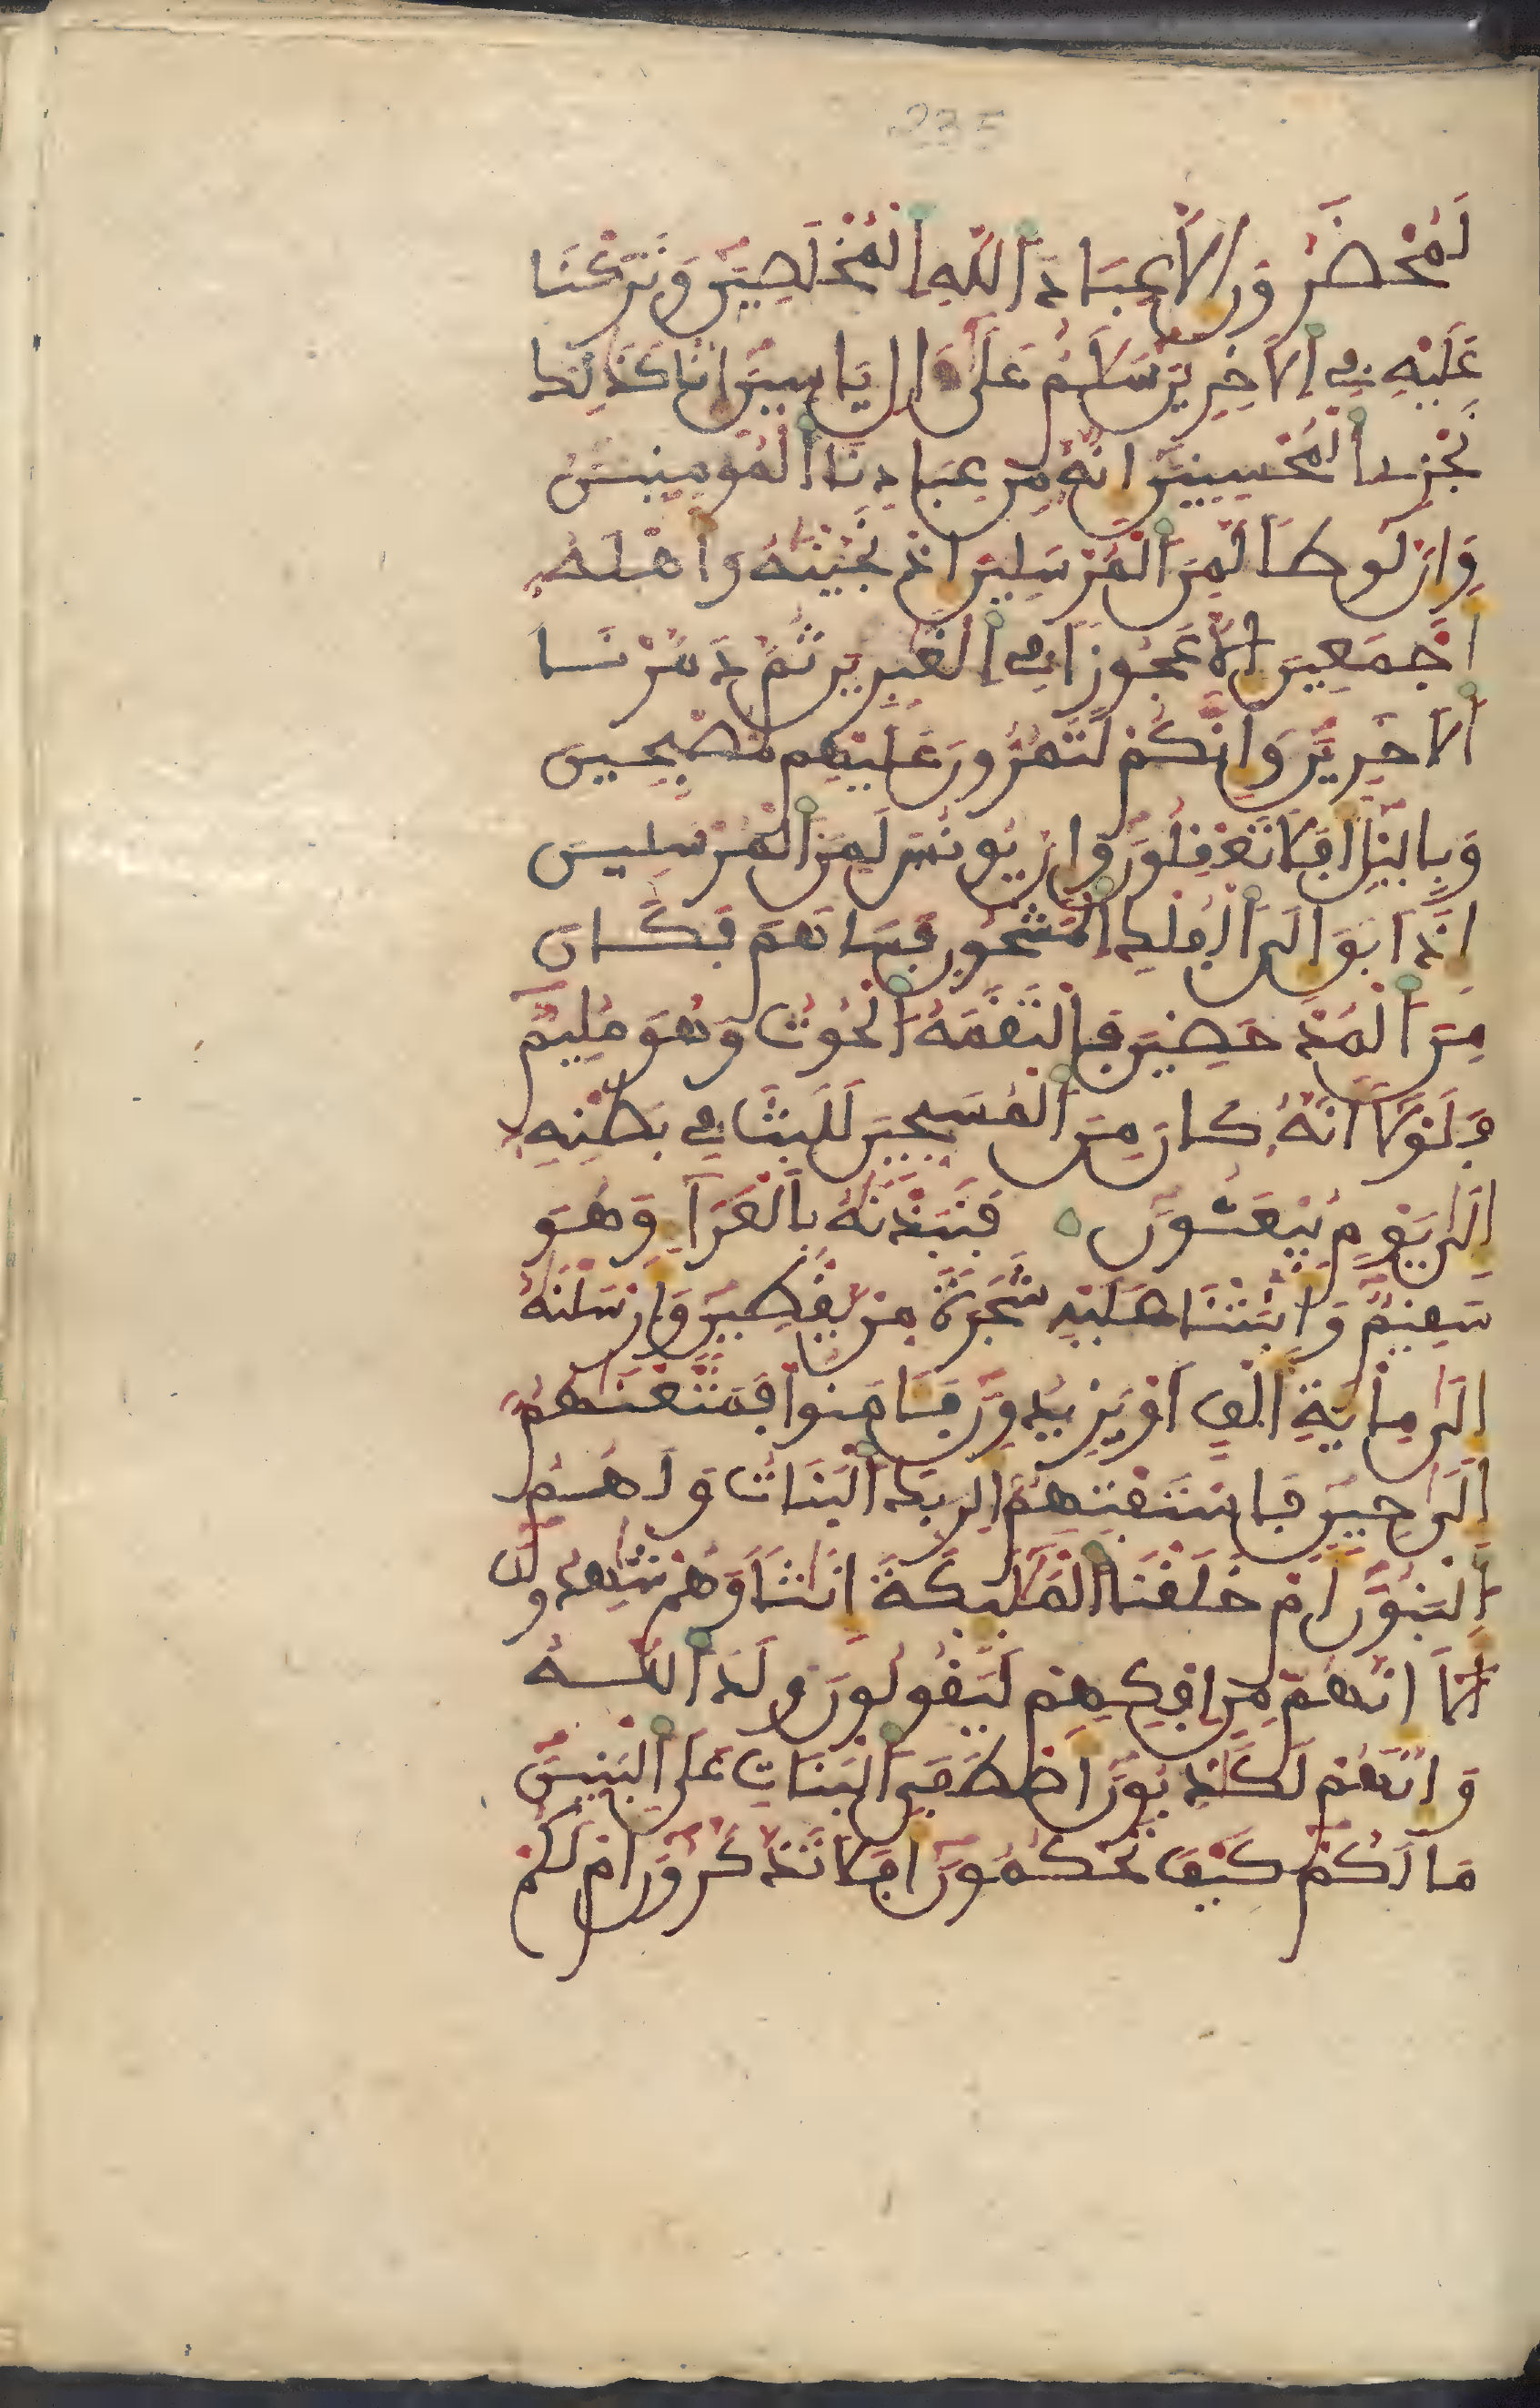 235
لَمُحْضَرُونَ إِلَّا عِبَادَ اَللَّهِ اِلْمُخْلَصِينَ وَتَرَكْنَا
عَلَيْهِ فِي اِلَاخِرِينَ سَلَٰمٌ عَلَىٰ ءَالِ يَاسِينَ إِنَّا كَذَٰلِكَ
نَجْزِے اِلْمُحْسِنِينَ إِنَّهُۥ مِنْ عِبَادِنَا اَلْمُومِنِينَ
وَإِنَّ لُوطاً لَّمِنَ اَلْمُرْسَلِينَ إِذْ نَجَّيْنَٰهُ وَأَهْلَهُۥ
أَجْمَعِينَ إِلَّا عَجُوزاً فِے اِلْغَٰبِرِينَ ثُمَّ دَمَّرْنَا
اَلَاخَرِينَ وَإِنَّكُمْ لَتَمُرُّونَ عَلَيْهِم مُّصْبِحِينَ
وَبِاليْلِ أَفَلَا تَعْقِلُونَ وَإِنَّ يُونُسَ لَمِنَ اَلْمُرْسَلِينَ
إِذَ اَبَقَ إِلَى اَلْفُلْكِ اِلْمَشْحُونِ فَسَاهَمَ فَكَانَ
مِنَ اَلْمُدْحَضِينَ فَالْتَقَمَهُ اُلْحُوتُ وَهُوَ مُلِيمٌ
فَلَوْلَا أَنَّهُۥ كَانَ مِنَ اَلْمُسَبِّحِينَ لَلَبِثَ فِے بَطْنِهِۦ
إِلَىٰ يَوْمِ يُبْعَثُونَ فَنَبَذْنَٰهُ بِالْعَرَآءِ وَهُوَ
سَقِيمٌ وَأَنۢبَتْنَا عَلَيْهِ شَجَرَةً مِّنْ يَّقْطِينٍ وَأَرْسَلْنَٰهُ
إِلَىٰ مِاْئَةِ أَلْفٍ اَوْ يَزِيدُونَ فَـَٔامَنُواْ فَمَتَّعْنَٰهُمُۥ
إِلَىٰ حِينٍ فَاسْتَفْتِهِمُۥ أَلِرَبِّكَ اَلْبَنَاتُ وَلَهُمُ
اُلْبَنُونَ أَمْ خَلَقْنَا اَلْمَلَٰٓئِكَةَ إِنَٰثاً وَهُمْ شَٰهِدُونَ
أَلَآ إِنَّهُم مِّنِ اِفْكِهِمْ لَيَقُولُونَ وَلَدَ اَللَّهُ
وَإِنَّهُمْ لَكَٰذِبُونَ أَصْطَفَى اَلْبَنَاتِ عَلَى اَلْبَنِينَ
مَا لَكُمْ كَيْفَ تَحْكُمُونَ أَفَلَا تَذَّكَّرُونَ أَمْ لَكُمْ